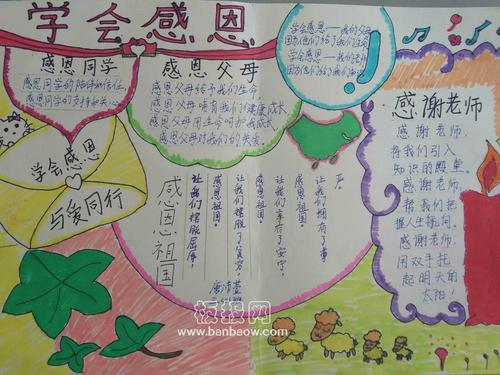 学会感恩
感恩同学
感恩同学的陪伴和信任
感恩同学的支持和关心
感恩父母
感恩父母给予我们生命
感恩父母哺育我们健康成长
感恩父母用生命呵护着成长
感恩父母对我们的关爱
学会感恩——我们父母
因为他们给了我们生命
学会感恩——我们老师
因为他们给了我们知识
学会感恩
与爱同行
感恩祖国
让我们拥有了尊
严。
感恩祖国!
让我们享有了安宁。
感恩祖国!
让我们摆脱了贫穷。
感恩祖国!
让我们摆脱屈辱!
感谢老师
感恩老师,
将我们引入
知识的殿堂。
感谢老师,
帮我们把
握人生航向。
感谢老师,
用双手托
起明天的
太阳!
板报网
www.banbaow.com